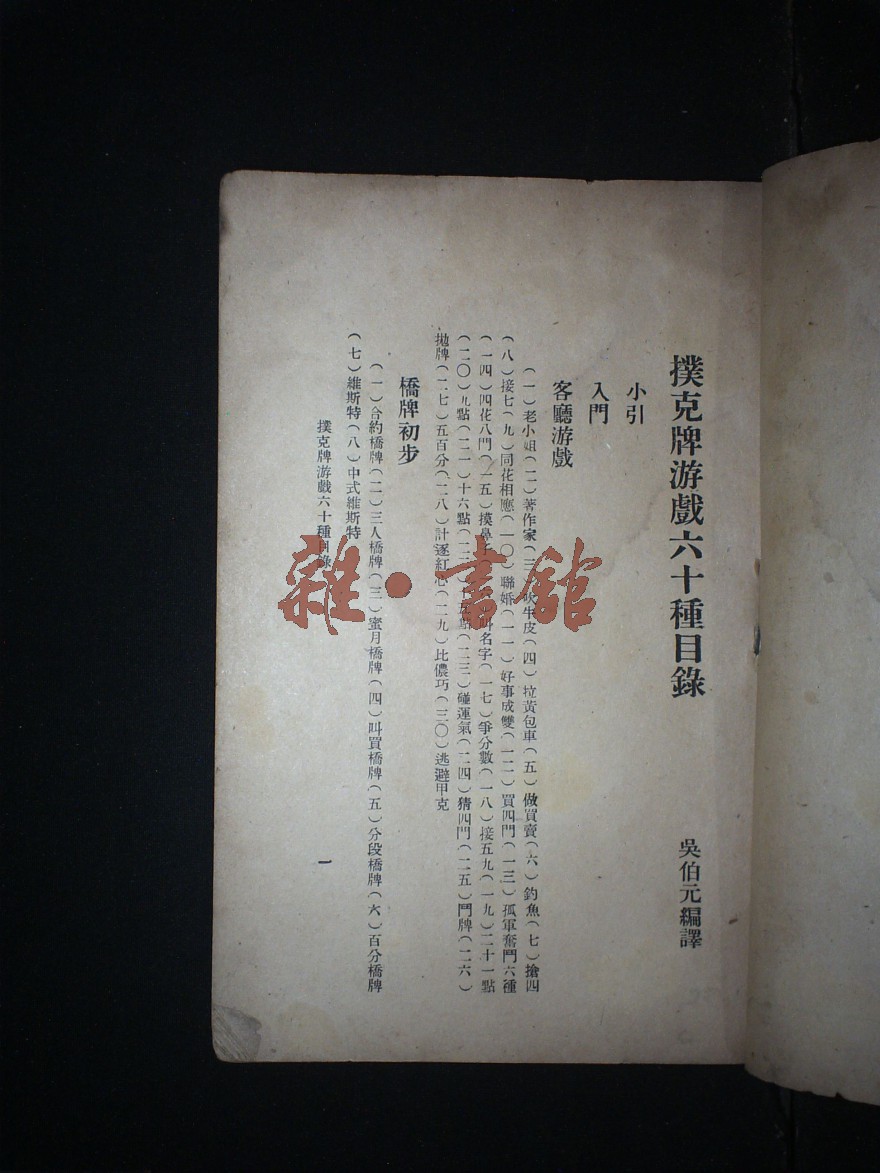 撲克牌游戲六十種目錄
吳伯元編譯
小引
入門
客廳游戲
(一)老小姐(二)著作家(三)吹牛皮(四)拉黃包車(五)做買賣(六)釣魚(七)搶四
(八)接七(九)同花相應(一〇)聯婚(一一)好事成雙(一二)買四門(一三)孤軍奮鬥六種
(一四)四花八門(一五)摸鼻子 叫名字(一七)爭分數(一八)接五九(一九)二十一點
(二〇)九點(二一)十六點(二二)十五點(二三)碰運氣(二四)猜四門(二五)鬥牌(二六)
拋牌(二七)五百分(二八)計逐紅心(二九)比儂巧(三〇)逃避甲克
橋牌初步
(一)合約橋牌(二)三人橋牌(三)蜜月橋牌(四)叫買橋牌(五)分段橋牌(六)百分橋牌
(七)維斯特(八)中式維斯特
撲克牌游戲六十種目錄
一
雜·書館